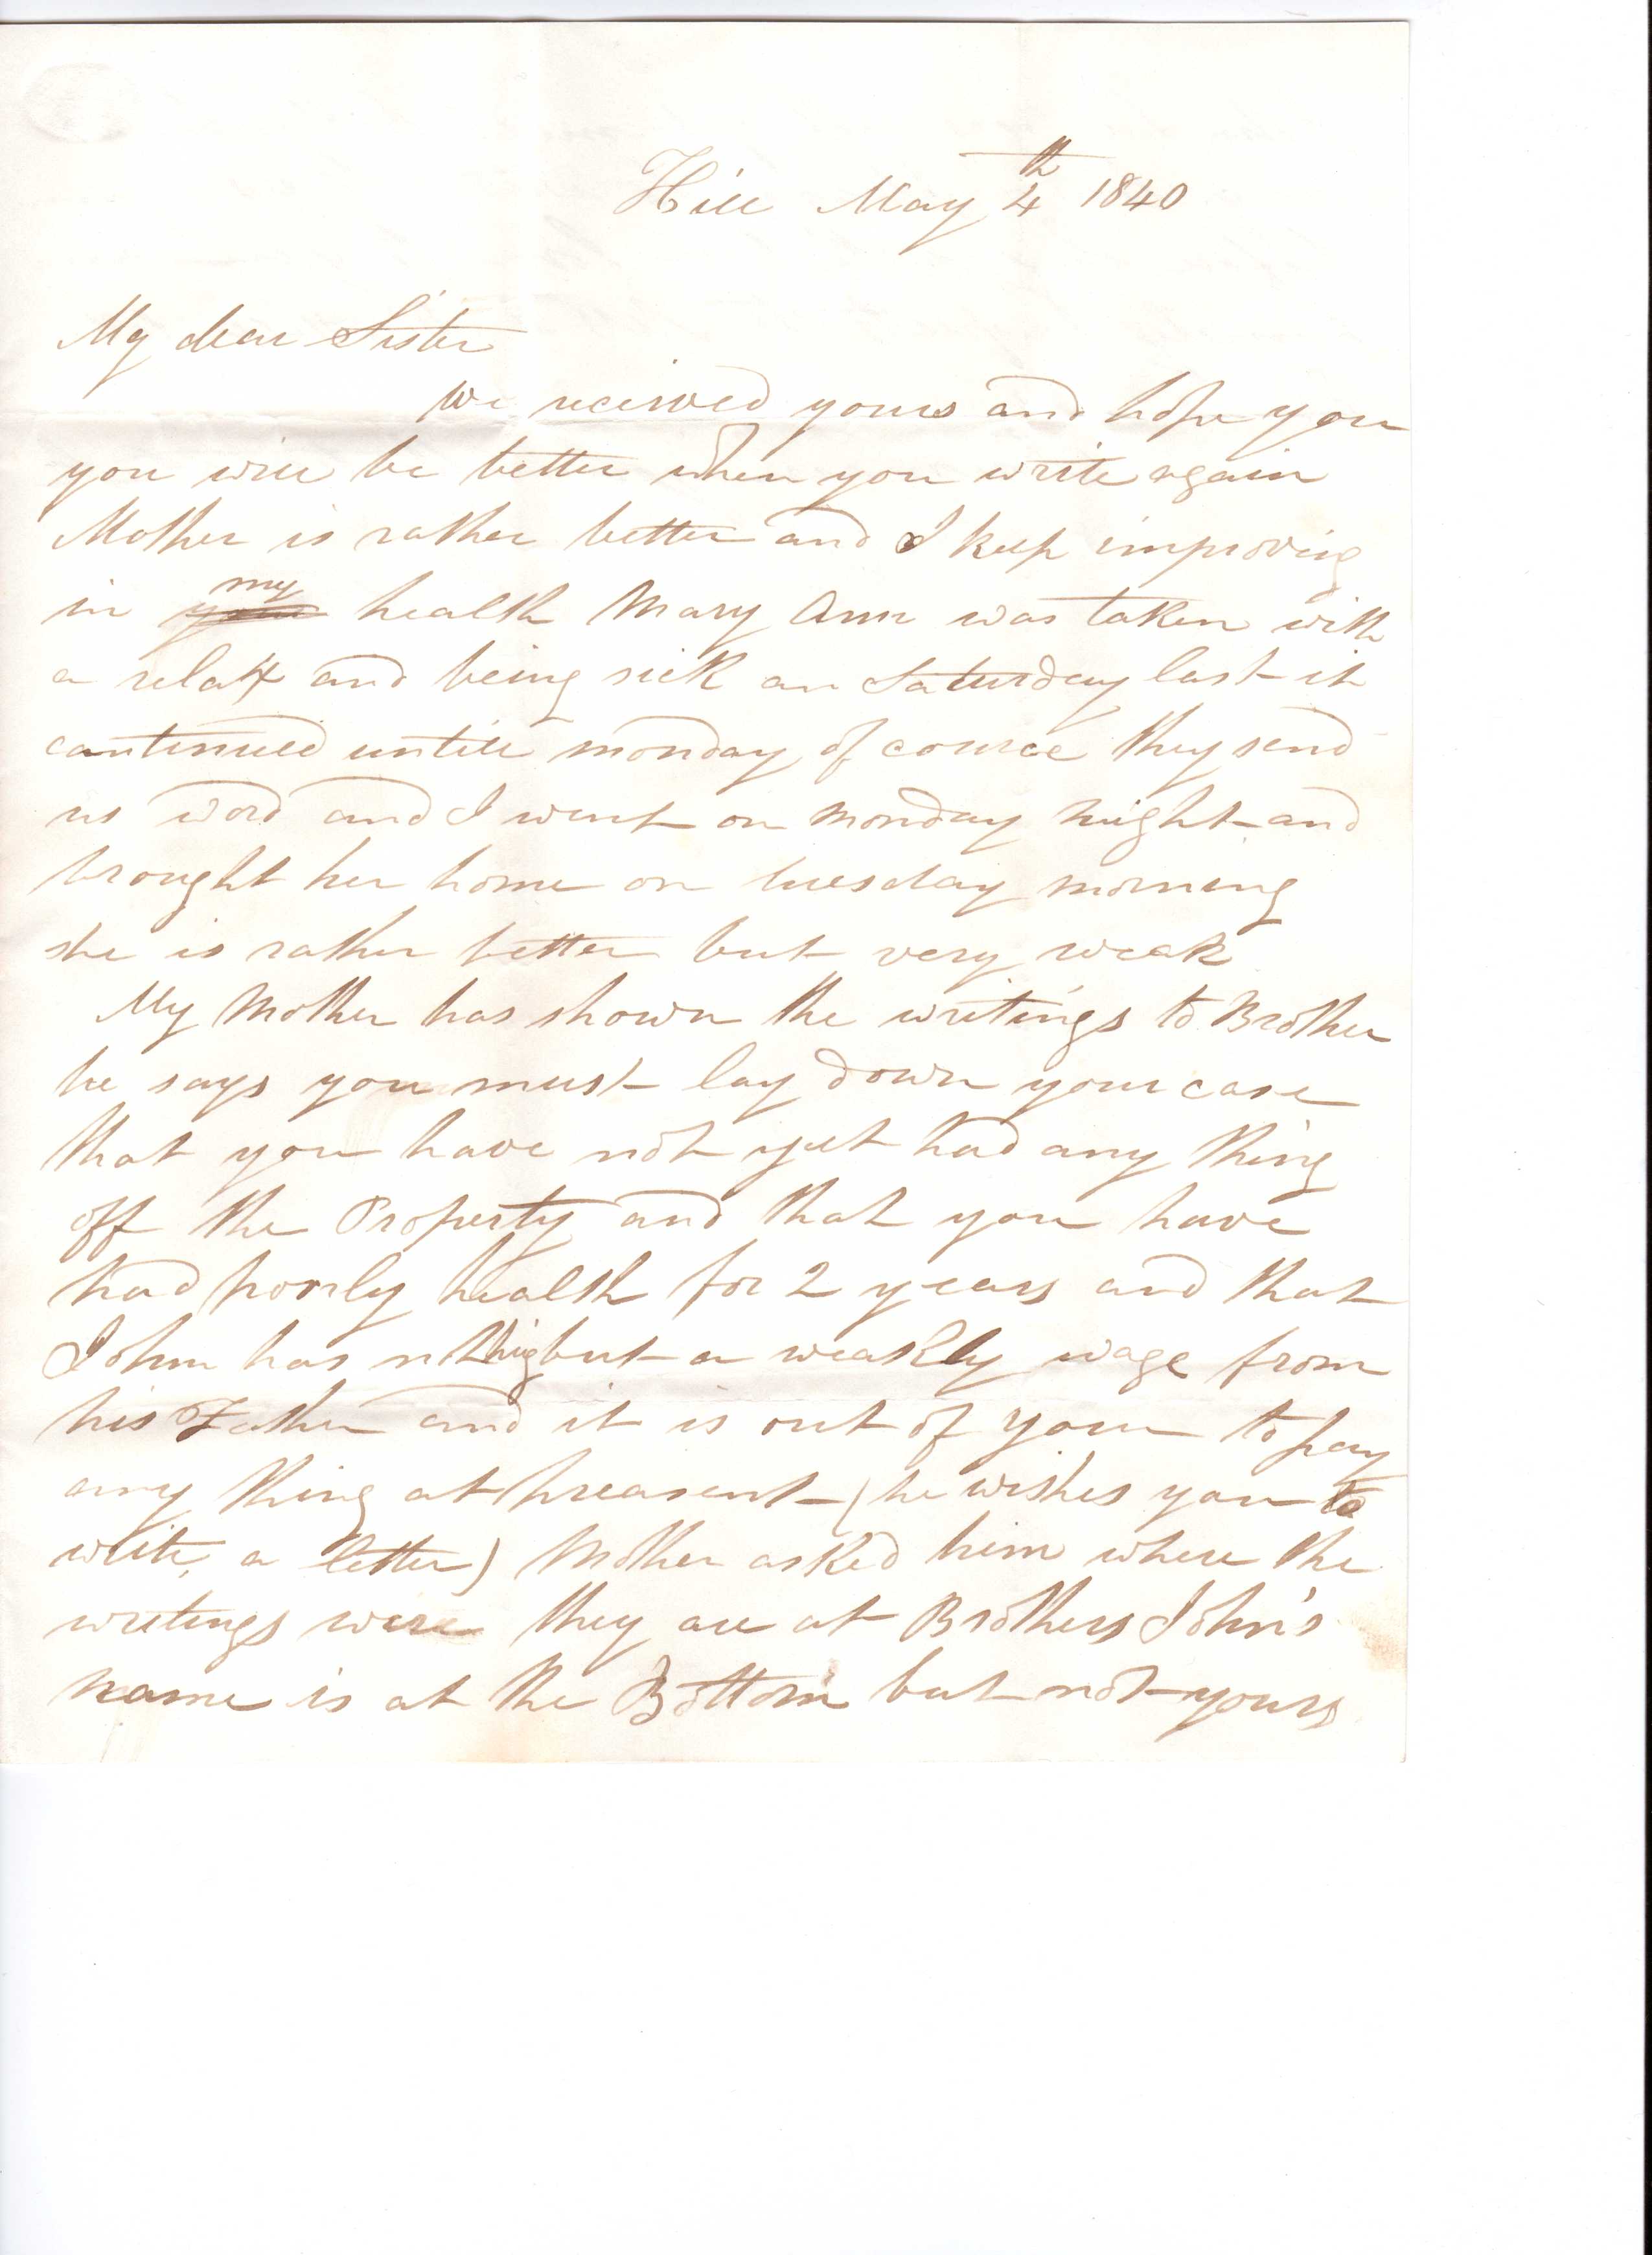 Hill May 4th 1840
My dear Sister
We received yours and hope you
you will be better when you write again
Mother is rather better and I keep improving
in my health Mary Ann was taken with
a relax and being sick on Saturday last it
continued untill monday of cource they send
us word and I went on monday night and
brought her home on tuesday morning
she is rather better but very weak
My Mother has shown the writings to Brother
he says you must lay down your case
that you have not yet had any thing
off the Property and that you have
had poorly health for 2 years and that
John has nothig but a weakly wage from
his Father and it is out of your to pay
any thing at preasent (he wishes you to
write, a letter) Mother asked him where the
writings were they are at Brothers John's
name is at the Bottom but not yours